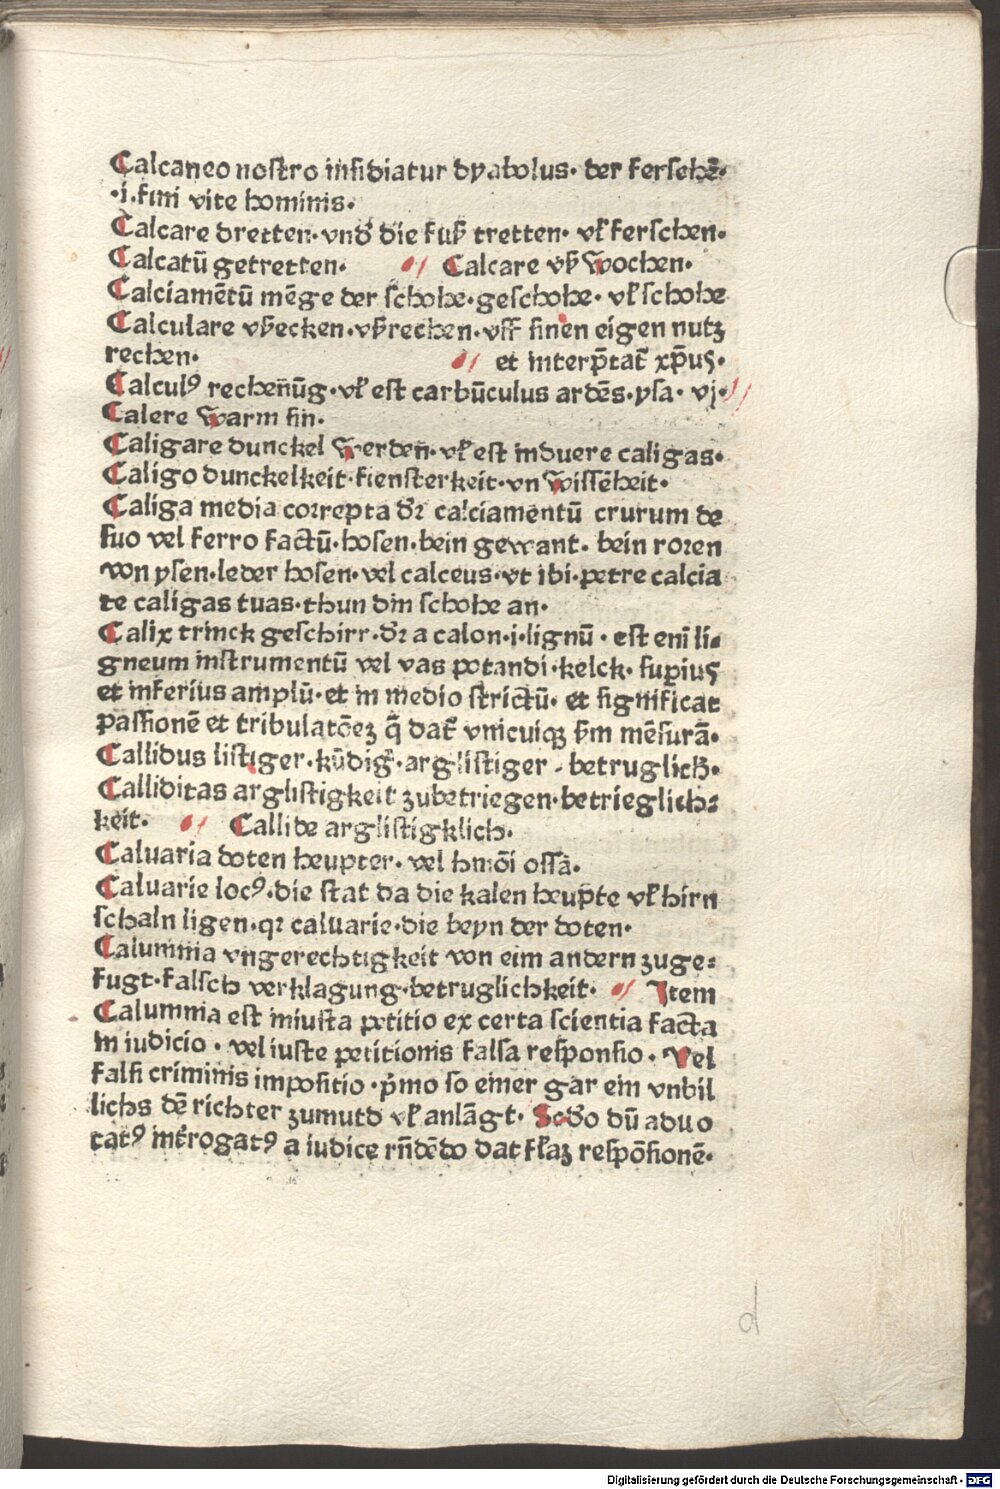 Calcaneo nostro insidiatur dyabolus· der fersehē·
·i·fini vite hominis·
Calcare dretten·vnd̕ die fuß tretten· vł ferschen·
Calcatū getretten· Calcare vß wochen·
Calciamētū mēge der schohe·geschohe· vł schohe
Calculare vßecken·vßrechen·vff sinen eigen nutz
rechen· et interp̄tat̄ xp̄us·
Calculꝰ rechen̄ūg·vł est carbūculus ardēs·ysa· vj·
Calere warm sin·
Caligare dunckel werden̄·vł est induere caligas·
Caligo dunckelkeit·fiensterkeit·vn wissēheit·
Caliga media correpta dr̄ calciamentū crurum de
suo vel ferro factū·hosen·bein gewant· bein roren
von ysen·leder hosen·vel calceus·vt ibi·petre calcia
te caligas tuas·thun din schohe an·
Calix trinck geschirr·dr̄ a calon·i·lignū· est eni̅ li⸗
gneum instrumentū vel vas potandi·kelck· sup̱ius
et inferius amplū·et in medio strictū· et significat
passionē et tribulatōeʒ q̄ dat̄ vnicuiqꝫ ẜm mēsurā·
Callidus listiger·kūdig̕·arglistiger·betruglich̄·
Calliditas arglistigkeit zubetriegen·betrieglich⸗
keit· Callide arglistigklich·
Caluaria doten heupter· vel hmōi ossa̅·
Caluarie locꝰ·die stat da die kalen heup̄te vł hirn
schaln ligen·qꝛ caluarie·die beyn der doten·
Calumnia vngerechtigkeit von eim andern zuge⸗
fugt·falsch verklagung·betruglichkeit· Item
Calumnia est iniusta petitio ex certa scientia facta
in iudicio· vel iuste petitionis falsa responsio· Vel
falsi criminis impositio·p̄mo so einer gar ein vnbil
lichs dē richter zumutd vł anlāgt· Scd̄o dū aduo
catꝰ int̄rogatꝰ a iudice rn̄dēdo dat fl̄aʒ respōsionē·
Digitalisierung gefördert durch die Deutsche Forschungsgemeinschaft - DFG